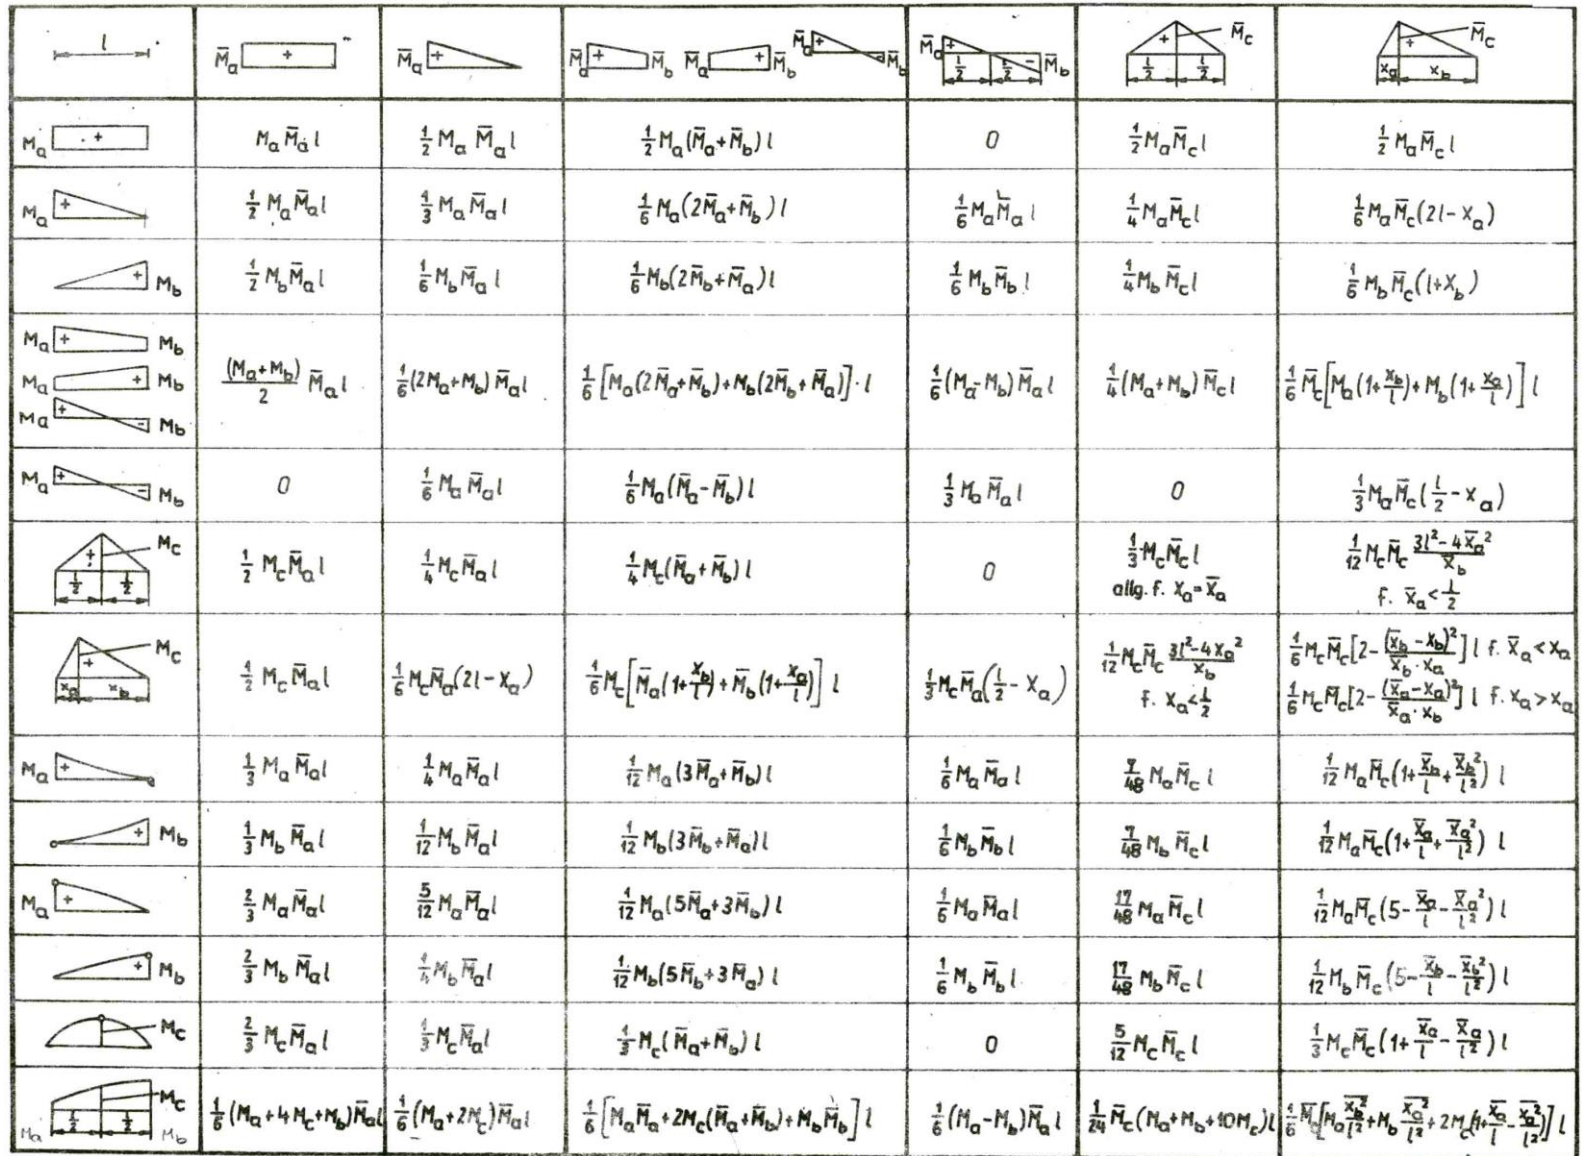 l | M̄a + | M̄a + | M̄a + M̄b M̄a + M̄b M̄a + M̄b | M̄a + l/2 l/2 - M̄b | + M̄c l/2 l/2 | + M̄c xa xb
Ma + | Ma M̄a l | 1/2 Ma M̄a l | 1/2 Ma(M̄a+M̄b) l | 0 | 1/2 Ma M̄c l | 1/2 Ma M̄c l
Ma + | 1/2 Ma M̄a l | 1/3 Ma M̄a l | 1/6 Ma(2M̄a+M̄b) l | 1/6 Ma M̄a l | 1/4 Ma M̄c l | 1/6 Ma M̄c(2l-xa)
+ Mb | 1/2 Mb M̄a l | 1/6 Mb M̄a l | 1/6 Mb(2M̄b+M̄a) l | 1/6 Mb M̄b l | 1/4 Mb M̄c l | 1/6 Mb M̄c(l+xb)
Ma + Mb Ma + Mb Ma + - Mb | (Ma+Mb)/2 M̄a l | 1/6(2Ma+Mb) M̄a l | 1/6[Ma(2M̄a+M̄b)+Mb(2M̄b+M̄a)]·l | 1/6(Ma-Mb) M̄a l | 1/4(Ma+Mb) M̄c l | 1/6 M̄c[Ma(1+xb/l)+Mb(1+xa/l)] l
Ma + - Mb | 0 | 1/6 Ma M̄a l | 1/6 Ma(M̄a-M̄b) l | 1/3 Ma M̄a l | 0 | 1/3 Ma M̄c(l/2-xa)
+ Mc l/2 l/2 | 1/2 Mc M̄a l | 1/4 Mc M̄a l | 1/4 Mc(M̄a+M̄b) l | 0 | 1/3 Mc M̄c l allg. f. xa=x̄a | 1/12 Mc M̄c (3l²-4x̄a²)/x̄b f. x̄a<l/2
+ Mc xa xb | 1/2 Mc M̄a l | 1/6 Mc M̄a(2l-xa) | 1/6 Mc[M̄a(1+xb/l)+M̄b(1+xa/l)] l | 1/3 Mc M̄a(l/2-xa) | 1/12 Mc M̄c (3l²-4xa²)/xb f. xa<l/2 | 1/6 Mc M̄c[2-(x̄b-xb)²/(x̄b·xa)] l f. x̄a<xa 1/6 Mc M̄c[2-(x̄a-xa)²/(x̄a·xb)] l f. xa>xa
Ma + | 1/3 Ma M̄a l | 1/4 Ma M̄a l | 1/12 Ma(3M̄a+M̄b) l | 1/6 Ma M̄a l | 7/48 Ma M̄c l | 1/12 Ma M̄c(1+x̄b/l+x̄b²/l²) l
+ Mb | 1/3 Mb M̄a l | 1/12 Mb M̄a l | 1/12 Mb(3M̄b+M̄a) l | 1/6 Mb M̄b l | 7/48 Mb M̄c l | 1/12 Ma M̄c(1+x̄a/l+x̄a²/l²) l
Ma + | 2/3 Ma M̄a l | 5/12 Ma M̄a l | 1/12 Ma(5M̄a+3M̄b) l | 1/6 Ma M̄a l | 17/48 Ma M̄c l | 1/12 Ma M̄c(5-x̄a/l-x̄a²/l²) l
+ Mb | 2/3 Mb M̄a l | 1/4 Mb M̄a l | 1/12 Mb(5M̄b+3M̄a) l | 1/6 Mb M̄b l | 17/48 Mb M̄c l | 1/12 Mb M̄c(5-x̄b/l-x̄b²/l²) l
Mc | 2/3 Mc M̄a l | 1/3 Mc M̄a l | 1/3 Mc(M̄a+M̄b) l | 0 | 5/12 Mc M̄c l | 1/3 Mc M̄c(1+x̄a/l-x̄a/l²) l
Ma l/2 l/2 Mc Mb | 1/6(Ma+4Mc+Mb)M̄a l | 1/6(Ma+2Mc)M̄a l | 1/6[Ma M̄a+2Mc(M̄a+M̄b)+Mb M̄b] l | 1/6(Ma-Mb) M̄a l | 1/24 M̄c(Ma+Mb+10Mc) l | 1/6 M̄c[Ma x̄b²/l²+Mb x̄a²/l²+2Mc(1+x̄a/l-x̄a²/l²)] l